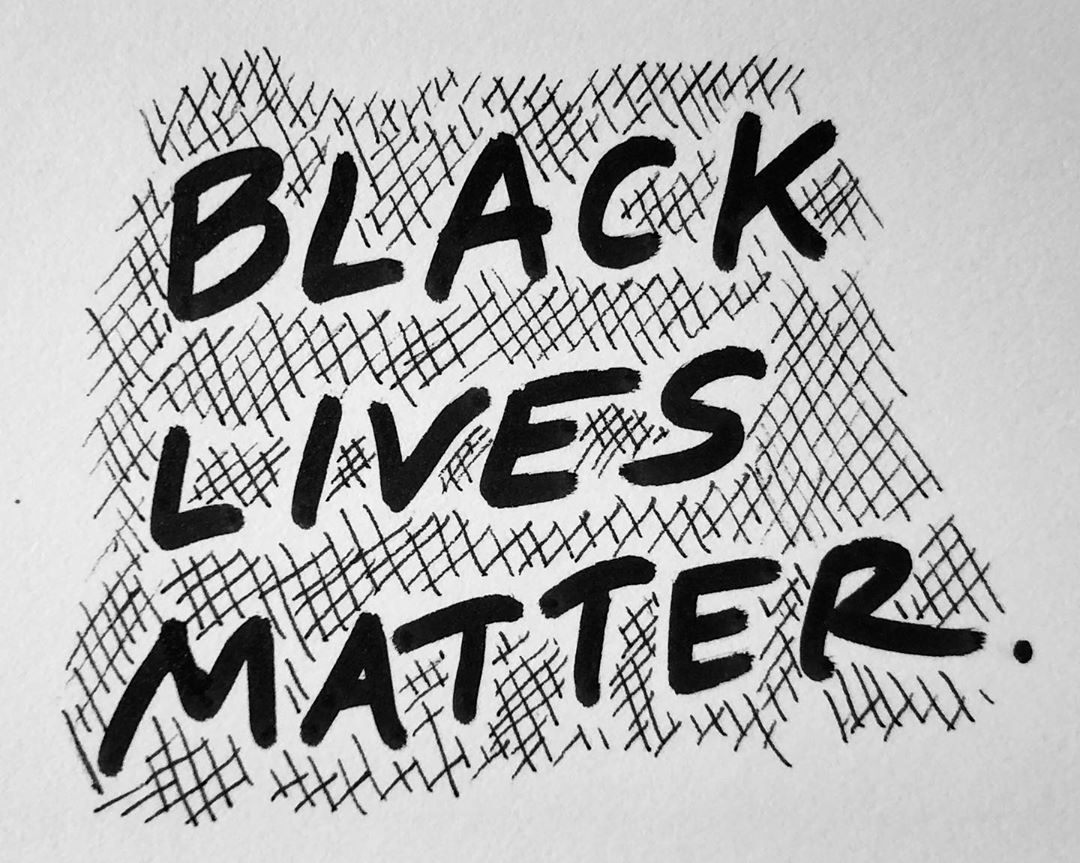 BLACK
LIVES
MATTER.